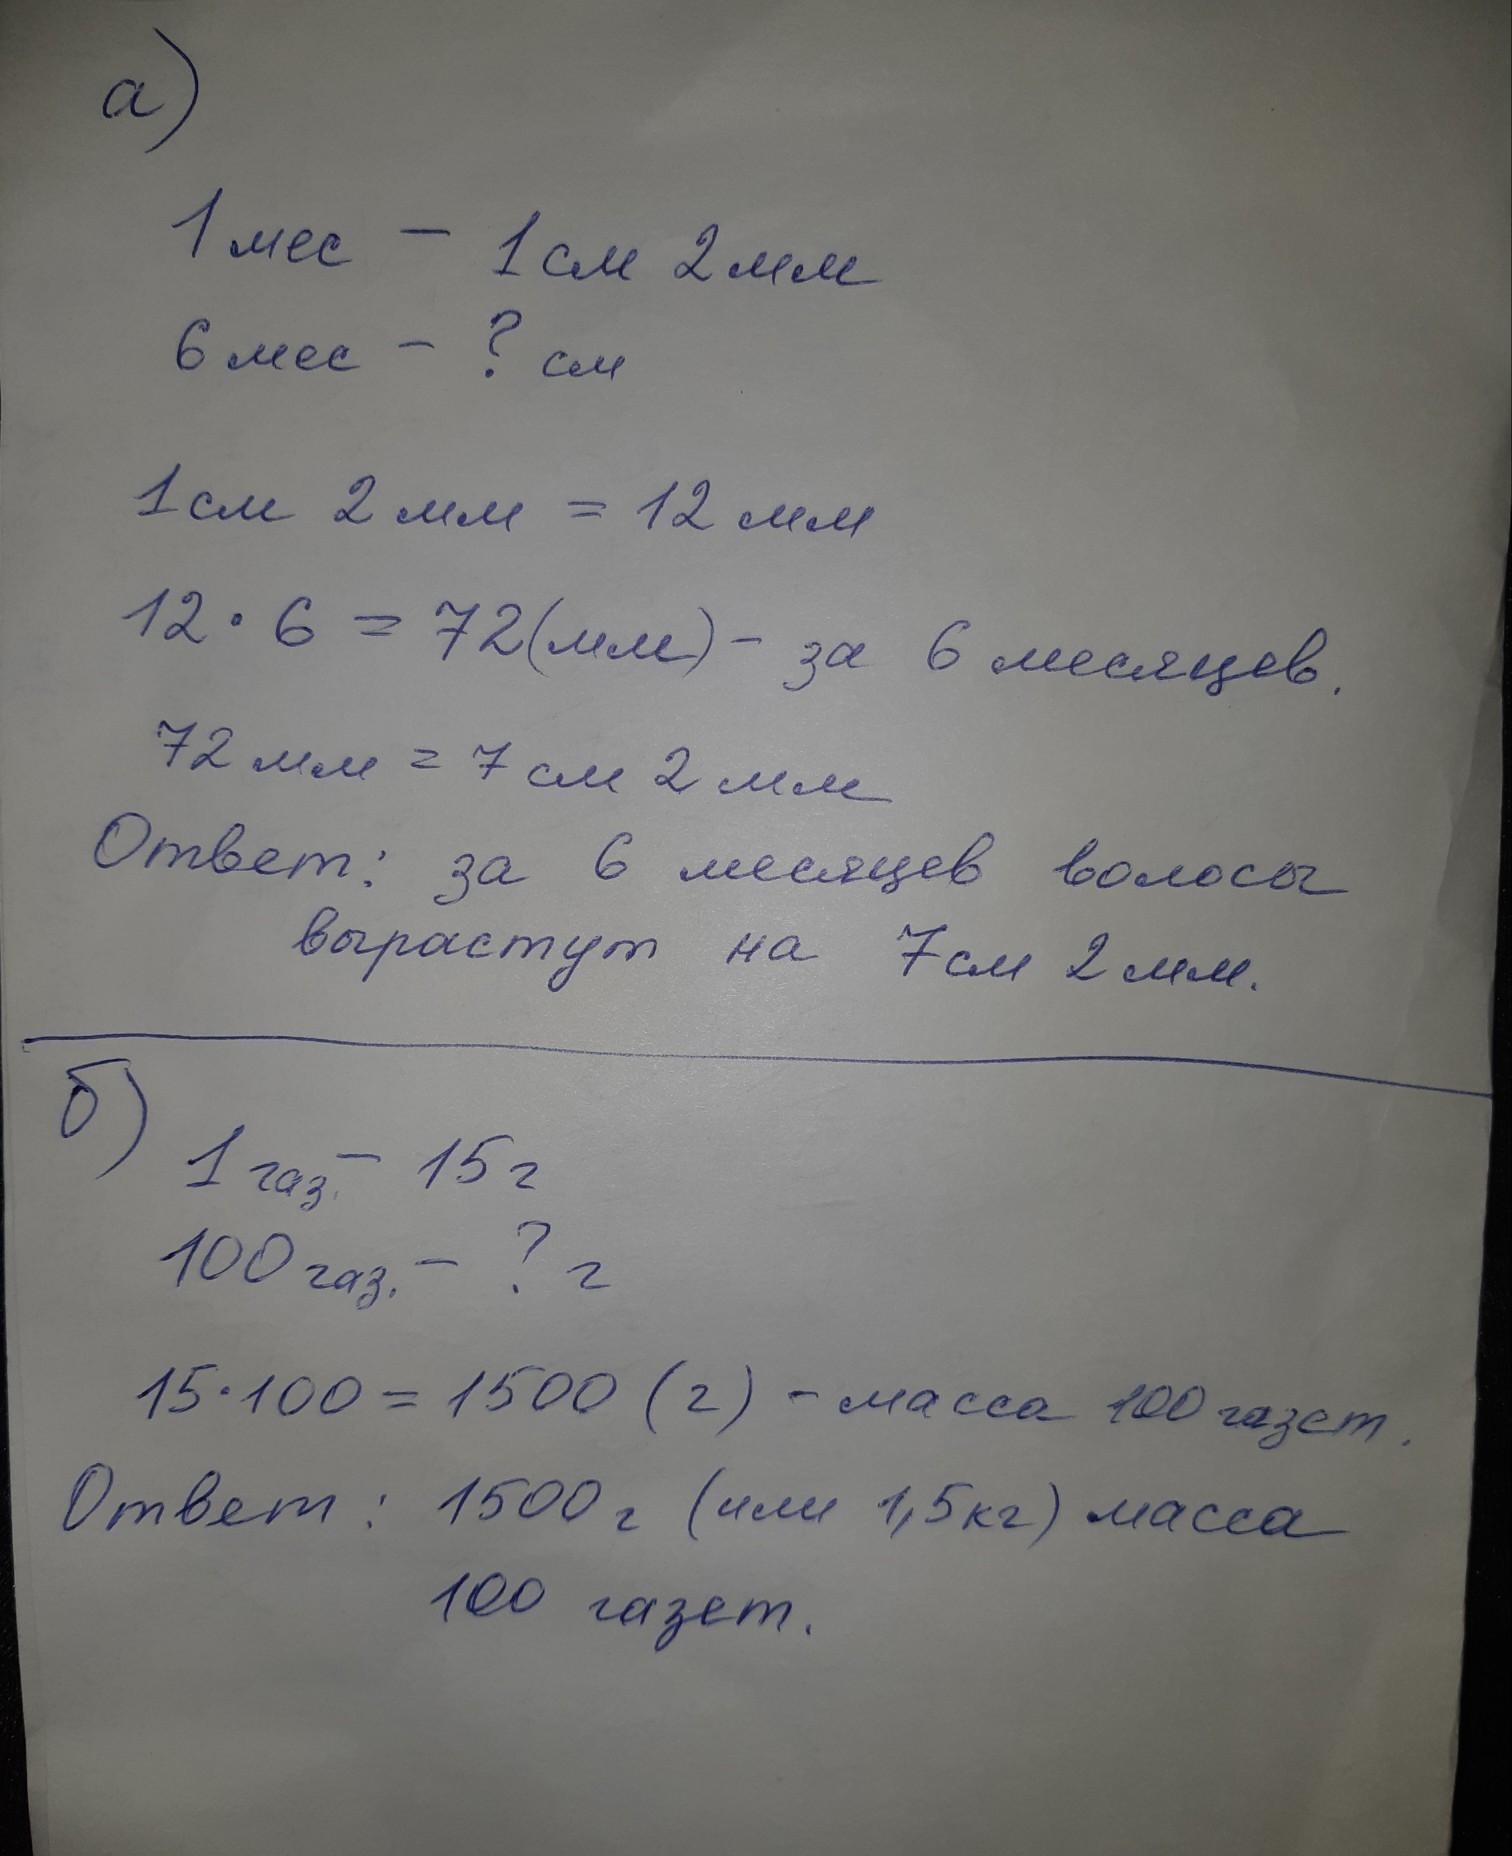 а)
1 мес – 1 см 2 мм
6 мес – ? см
1 см 2 мм = 12 мм
12 · 6 = 72 (мм) – за 6 месяцев.
72 мм = 7 см 2 мм
Ответ: за 6 месяцев волосы
вырастут на 7 см 2 мм.
б)
1 газ. – 15 г
100 газ. – ? г
15 · 100 = 1500 (г) – масса 100 газет.
Ответ: 1500 г (или 1,5 кг) масса
100 газет.